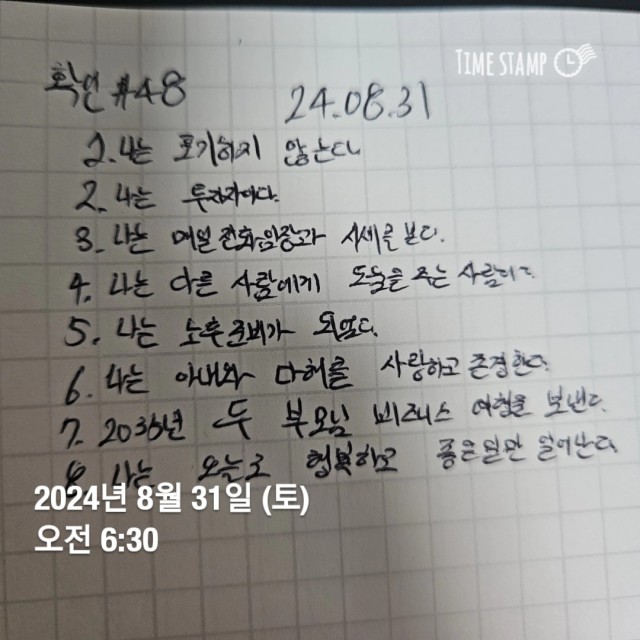 TIME STAMP
확언 #48 24.08.31
1. 나는 포기하지 않는다.
2. 나는 투자자이다.
3. 나는 매일 전화임장과 시세를 본다.
4. 나는 다른 사람에게 도움을 주는 사람이다.
5. 나는 노후준비가 되었다.
6. 나는 아내와 다허를 사랑하고 존경한다.
7. 2035년 두 부모님 비즈니스 여행을 보낸다.
8 나는 오늘도 행복하고 좋은일만 일어난다.
2024년 8월 31일 (토)
오전 6:30